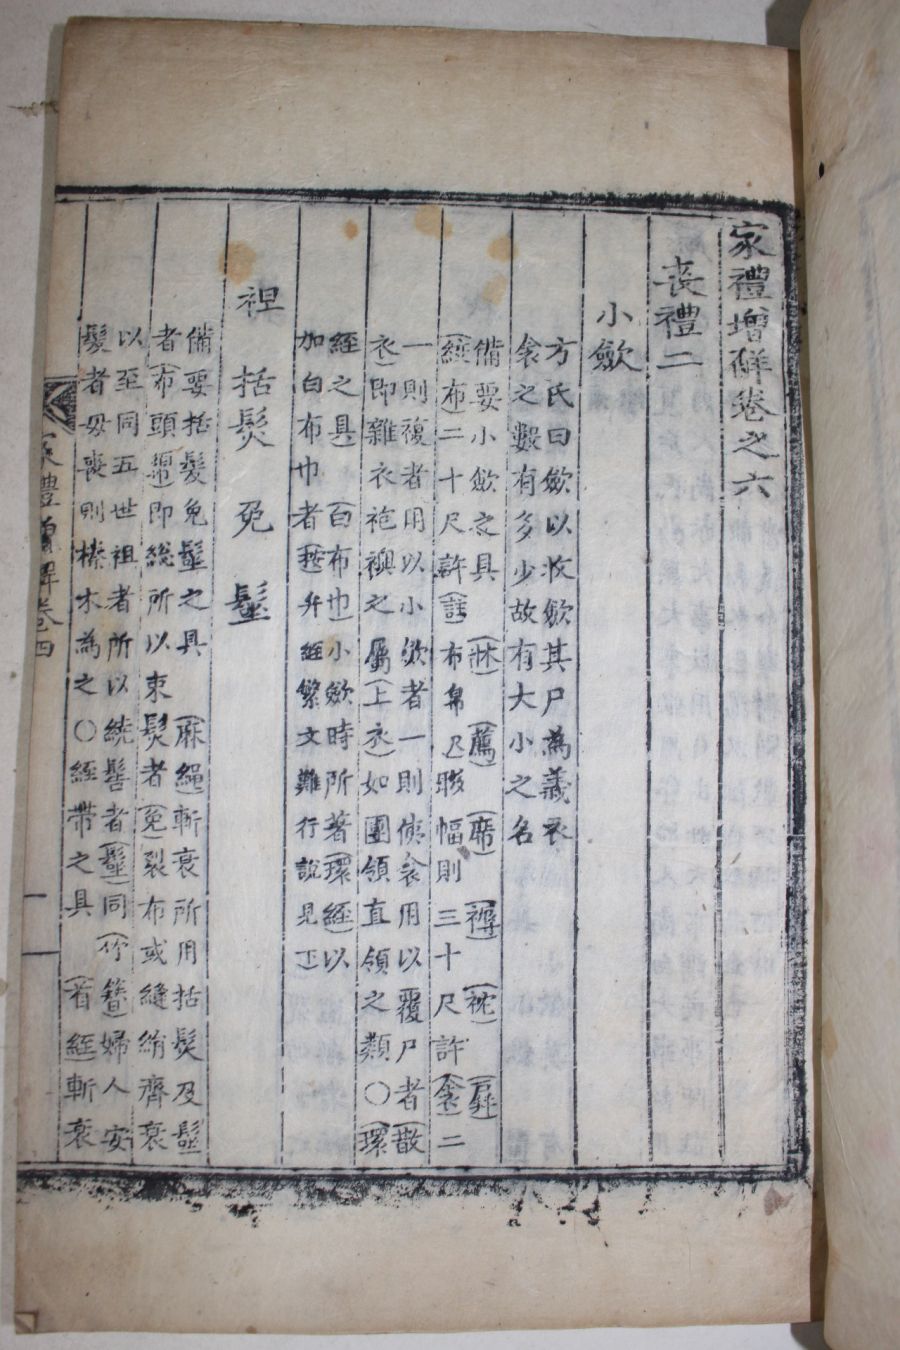 家禮增解卷之六
喪禮二
小斂
方氏曰斂以收斂其尸為義衣
衾之數有多少故有大小之名
備要小斂之具(牀)(薦)(席)(褥)(枕)(屛)
(絞布)二十尺許(註)布帛尺 幅則三十尺許(衾)二
一則複者用以小斂者一則俠衾用以覆尸者(散
衣)即雜衣袍襖之屬(上衣)如團領直領之類○(環
絰之具)(白布巾)小斂時所著(環絰)以
加白布巾者(按)弁絰繁文難行說見下
袒 括髮 免 髽
備要括髮免髽之具(麻繩)斬衰所用括髮及髽
者(布頭䋺)即總所以束髮者(免)裂布或縫絹齊衰
以至同五世祖者所以繞髻者(髽)同(竹簪)婦人安
髮者母喪則榛木為之○絰帶之具(首絰)斬衰
家禮增解卷四
一